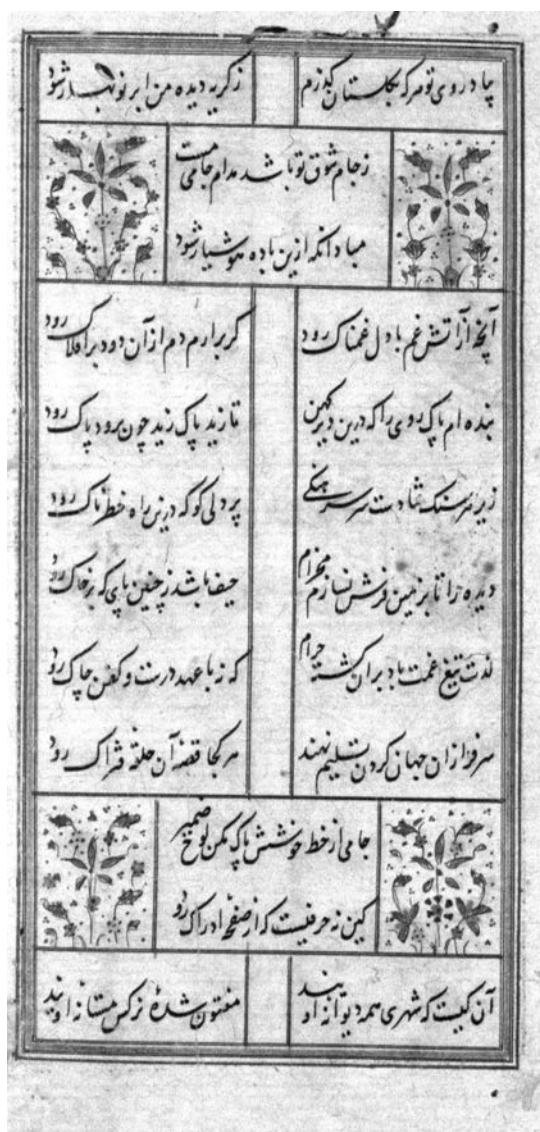 چو در روی تو مرکه بگلستان گذرم زگریه دیده من ابر نوبهار شود
زجام شوق تو باشد مدام جامی مست
مباد آنکه ازین باده هوشیار شود
آنچه از آتش غم با دل غمناک رود کر برارم دم از آن دود بر افلاک رود
بنده ام پاک روی را که درین دیر کهن تا زید پاک زید چون برود پاک رود
زیر هر سنک فتادست سر سرهنگی پر دلی کو که درین راه خطرناک رود
دیده را تا بزمین فرش نسازم مخرام حیف باشد ز چنین پای که بر خاک رود
لذت تیغ غمت باد بران کشته حرام که نه با عهد درست و کفن چاک رود
سرفرازان جهان کردن تسلیم نهند هر کجا قصه آن حلقه فتراک رود
جامی از خط خوشش پاک مکن لوح ضمیر
کین نه حرفیست که از صفحه ادراک رود
آن کیست که شهری همه دیوانه اویند مفتون شده نرکس مستانه اویند